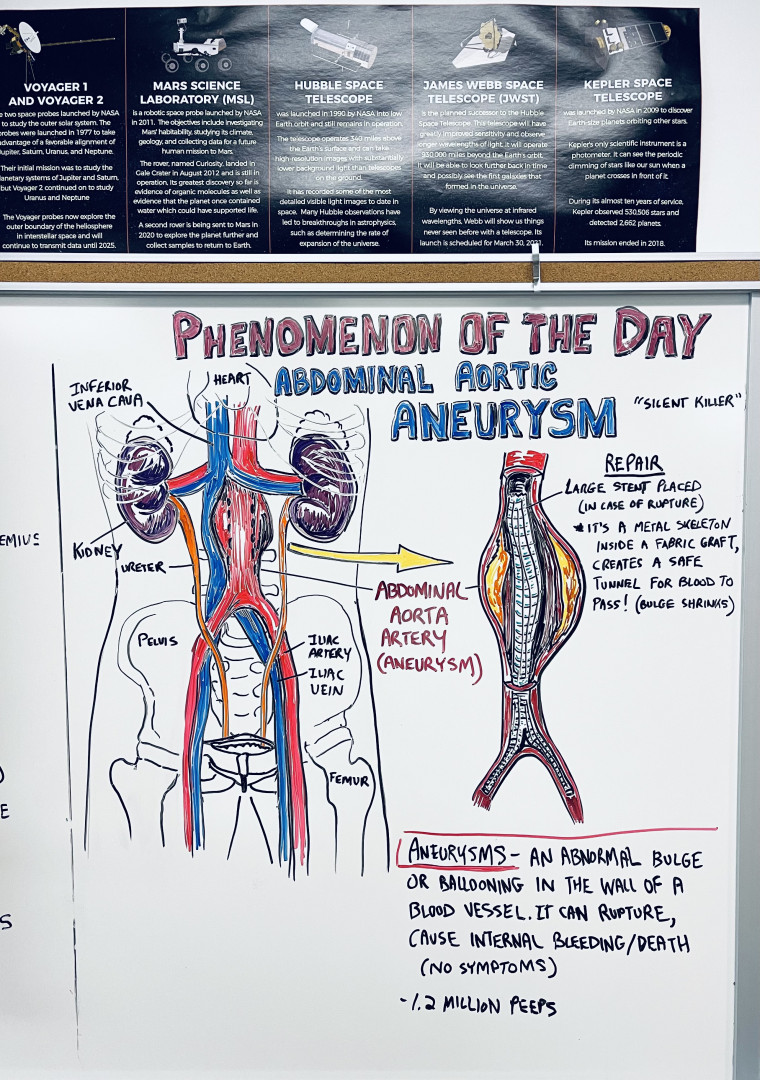 VOYAGER 1
AND VOYAGER 2
two space probes launched by NASA
to study the outer solar system. The
probes were launched in 1977 to take
advantage of a favorable alignment of
Jupiter, Saturn, Uranus, and Neptune.
Their initial mission was to study the
planetary systems of Jupiter and Saturn,
but Voyager 2 continued on to study
Uranus and Neptune
The Voyager probes now explore the
outer boundary of the heliosphere
in interstellar space and will
continue to transmit data until 2025.
MARS SCIENCE
LABORATORY (MSL)
is a robotic space probe launched by NASA
in 2011. The objectives include investigating
Mars' habitability, studying its climate,
geology, and collecting data for a future
human mission to Mars.
The rover, named Curiosity, landed in
Gale Crater in August 2012 and is still in
operation, its greatest discovery so far is
evidence of organic molecules as well as
evidence that the planet once contained
water which could have supported life.
A second rover is being sent to Mars in
2020 to explore the planet further and
collect samples to return to Earth.
HUBBLE SPACE
TELESCOPE
was launched in 1990 by NASA into low
Earth orbit and still remains in operation.
The telescope operates 340 miles above
the Earth's surface and can take
high-resolution images with substantially
lower background light than telescopes
on the ground.
It has recorded some of the most
detailed visible light images to date in
space. Many Hubble observations have
led to breakthroughs in astrophysics,
such as determining the rate of
expansion of the universe.
JAMES WEBB SPACE
TELESCOPE (JWST)
is the planned successor to the Hubble
Space Telescope. This telescope will have
greatly improved sensitivity and observe
longer wavelengths of light. It will operate
930,000 miles beyond the Earth's orbit.
It will be able to look further back in time
and possibly see the first galaxies that
formed in the universe.
By viewing the universe at infrared
wavelengths, Webb will show us things
never seen before with a telescope. Its
launch is scheduled for March 30, 2021.
KEPLER SPACE
TELESCOPE
was launched by NASA in 2009 to discover
Earth-size planets orbiting other stars.
Kepler's only scientific instrument is a
photometer. It can see the periodic
dimming of stars like our sun when a
planet crosses in front of it.
During its almost ten years of service,
Kepler observed 530,506 stars and
detected 2,662 planets.
Its mission ended in 2018.
PHENOMENON OF THE DAY
ABDOMINAL AORTIC
ANEURYSM
"SILENT KILLER"
INFERIOR
VENA CAVA
HEART
KIDNEY
URETER
PELVIS
ILIAC
ARTERY
ILIAC
VEIN
FEMUR
ABDOMINAL
AORTA
ARTERY
(ANEURYSM)
REPAIR
LARGE STENT PLACED
(IN CASE OF RUPTURE)
*IT'S A METAL SKELETON
INSIDE A FABRIC GRAFT,
CREATES A SAFE
TUNNEL FOR BLOOD TO
PASS! (BULGE SHRINKS)
ANEURYSMS- AN ABNORMAL BULGE
OR BALLOONING IN THE WALL OF A
BLOOD VESSEL. IT CAN RUPTURE,
CAUSE INTERNAL BLEEDING/DEATH
(NO SYMPTOMS)
-1.2 MILLION PEEPS
EMIUS
E
S